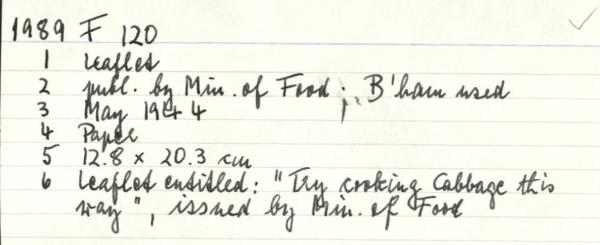 1989 F 120
1 Leaflet
2 publ. by Min. of Food ; B'ham used
3 May 1944
4 Paper
5 12.8 x 20.3 cm
6 Leaflet entitled: "Try cooking Cabbage this
way", issued by Min. of Food